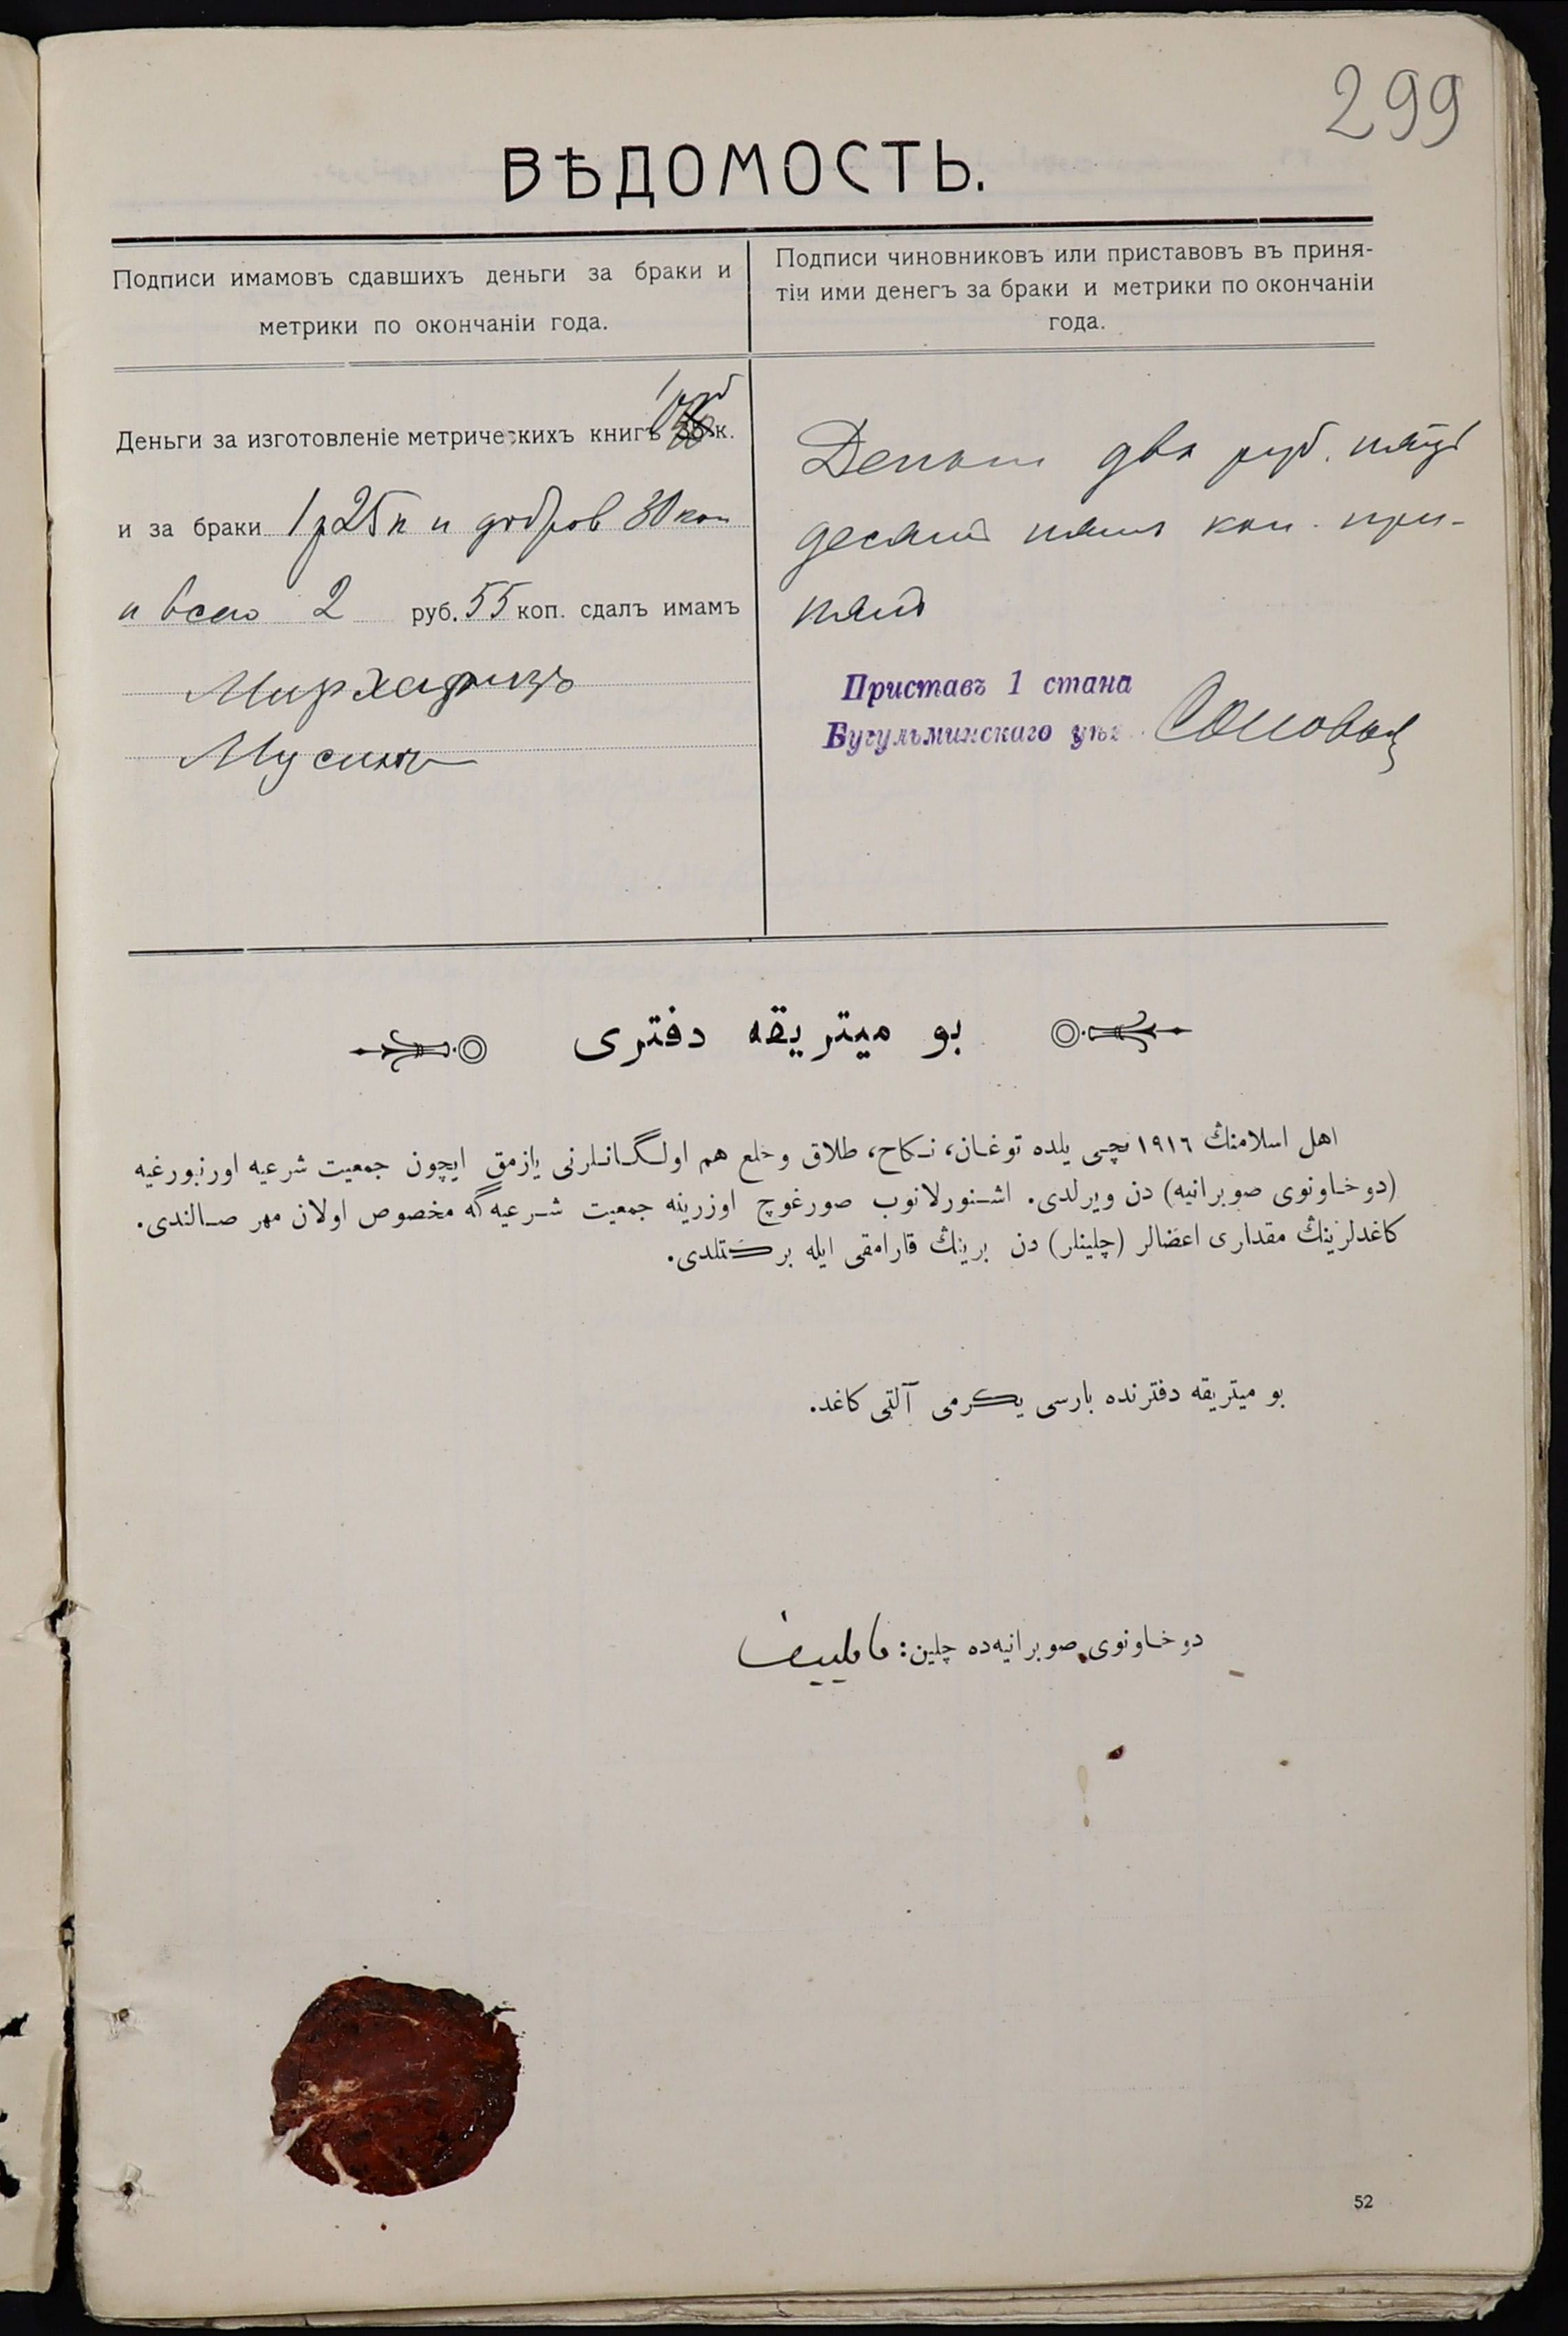 299
ВѢДОМОСТЬ.
Подписи имамовъ сдавшихъ деньги за браки и
метрики по окончаніи года.
Подписи чиновниковъ или приставовъ въ приня-
тіи ими денегъ за браки и метрики по окончаніи
года.
1 руб
Деньги за изготовленіе метрическихъ книгъ к.
и за браки 1 р 25 к и добров 30 коп
и всего 2 руб. 55 коп. сдалъ имамъ
Мирхафизъ
Мусинъ
Деньги два руб. пять
десятъ пять коп. при-
нялъ
Приставъ 1 стана
Бугульминскаго уѣз
بو ميتريقه دفتری
اهل اسلامنڭ ١٩١٦ نچی يلده توغان، نكاح، طلاق وخلع هم اولگانلرنی يازمق ايچون جمعيت شرعيه اورنبورغيه
(دوخاونوی صوبرانيه) دن ويرلدی. اشنورلانوب صورغوچ اوزرينه جمعيت شرعيه‌گه مخصوص اولان مهر صالندی.
كاغدلرينڭ مقداری اعضالر (چلينلر) دن برينڭ قارامقی ايله بركتلدی.
بو ميتريقه دفترنده بارسی يكرمی آلتی كاغد.
دوخاونوی صوبرانيه‌ده چلين:
52